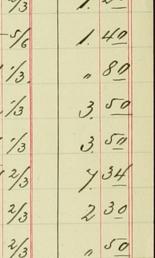 5/6 1. 40
1/3. " 80
1/3 3. 50
1/3 3. 50
2/3 7. 34
2/3 2 30
2/3 " 50